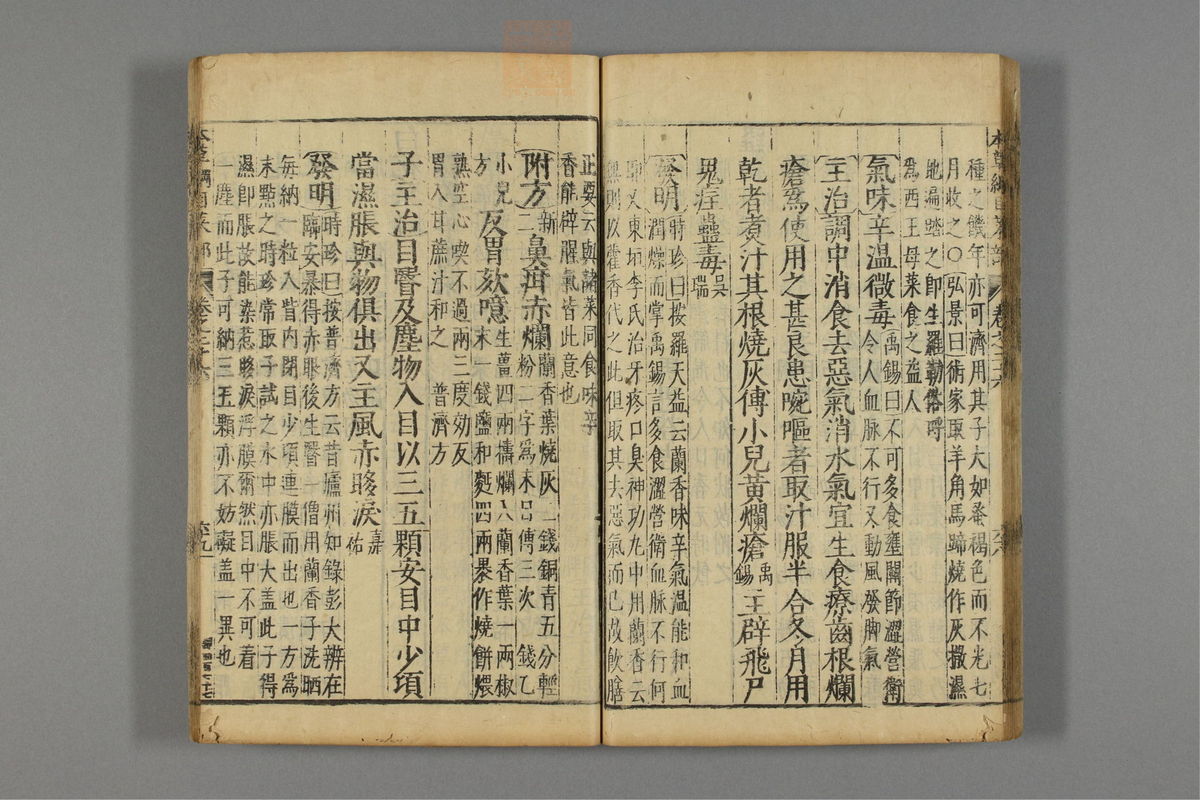 種之饑年亦可濟用其子大如蚤褐色而不光七
月收之○弘景曰術家取羊角馬蹄燒作灰撒濕
地遍踏之即生羅勒俗呼
爲西王母菜食之益人
氣味辛溫微毒禹錫曰不可多食壅關節澀營衛
令人血脉不行又動風發脚氣
主治調中消食去惡氣消水氣宜生食療齒根爛
瘡爲使用之甚良患啘嘔者取汁服半合冬月用
乾者煮汁其根燒灰傅小兒黃爛瘡禹錫主辟飛尸
鬼疰蠱毒吳瑞
發明時珍曰按羅天益云蘭香味辛氣溫能和血
潤燥而掌禹錫言多食澀營衛血脉不行何
耶又東垣李氏治牙疼口臭神功丸中用蘭香云
無則以藿香代之此但取其去惡氣而已故飲膳
正要云與諸菜同食味辛
香能辟腥氣皆此意也
附方新二鼻疳赤爛蘭香葉燒灰二錢銅青五分輕
粉二字爲末日傅三次 錢乙
小兒
方 反胃欬噫生薑四兩擣爛入蘭香葉一兩椒
末一錢鹽和麪四兩暴作燒餅煨
熟空心喫不過兩三度効反
胃入甘蔗汁和之 普濟方
子主治目瞖及塵物入目以三五顆安目中少頃
當濕脹與物俱出又主風赤眵淚嘉祐
發明時珍曰按普濟方云昔廬州知錄彭大辨在
臨安暴得赤眼後生瞖一僧用蘭香子洗晒
每納一粒入眥内閉目少頃連膜而出也一方爲
末點之時珍常取子試之水中亦脹大盖此子得
濕即脹故能染惹眵淚浮膜爾然目中不可着
一塵而此子可納三五顆亦不妨礙盖一異也